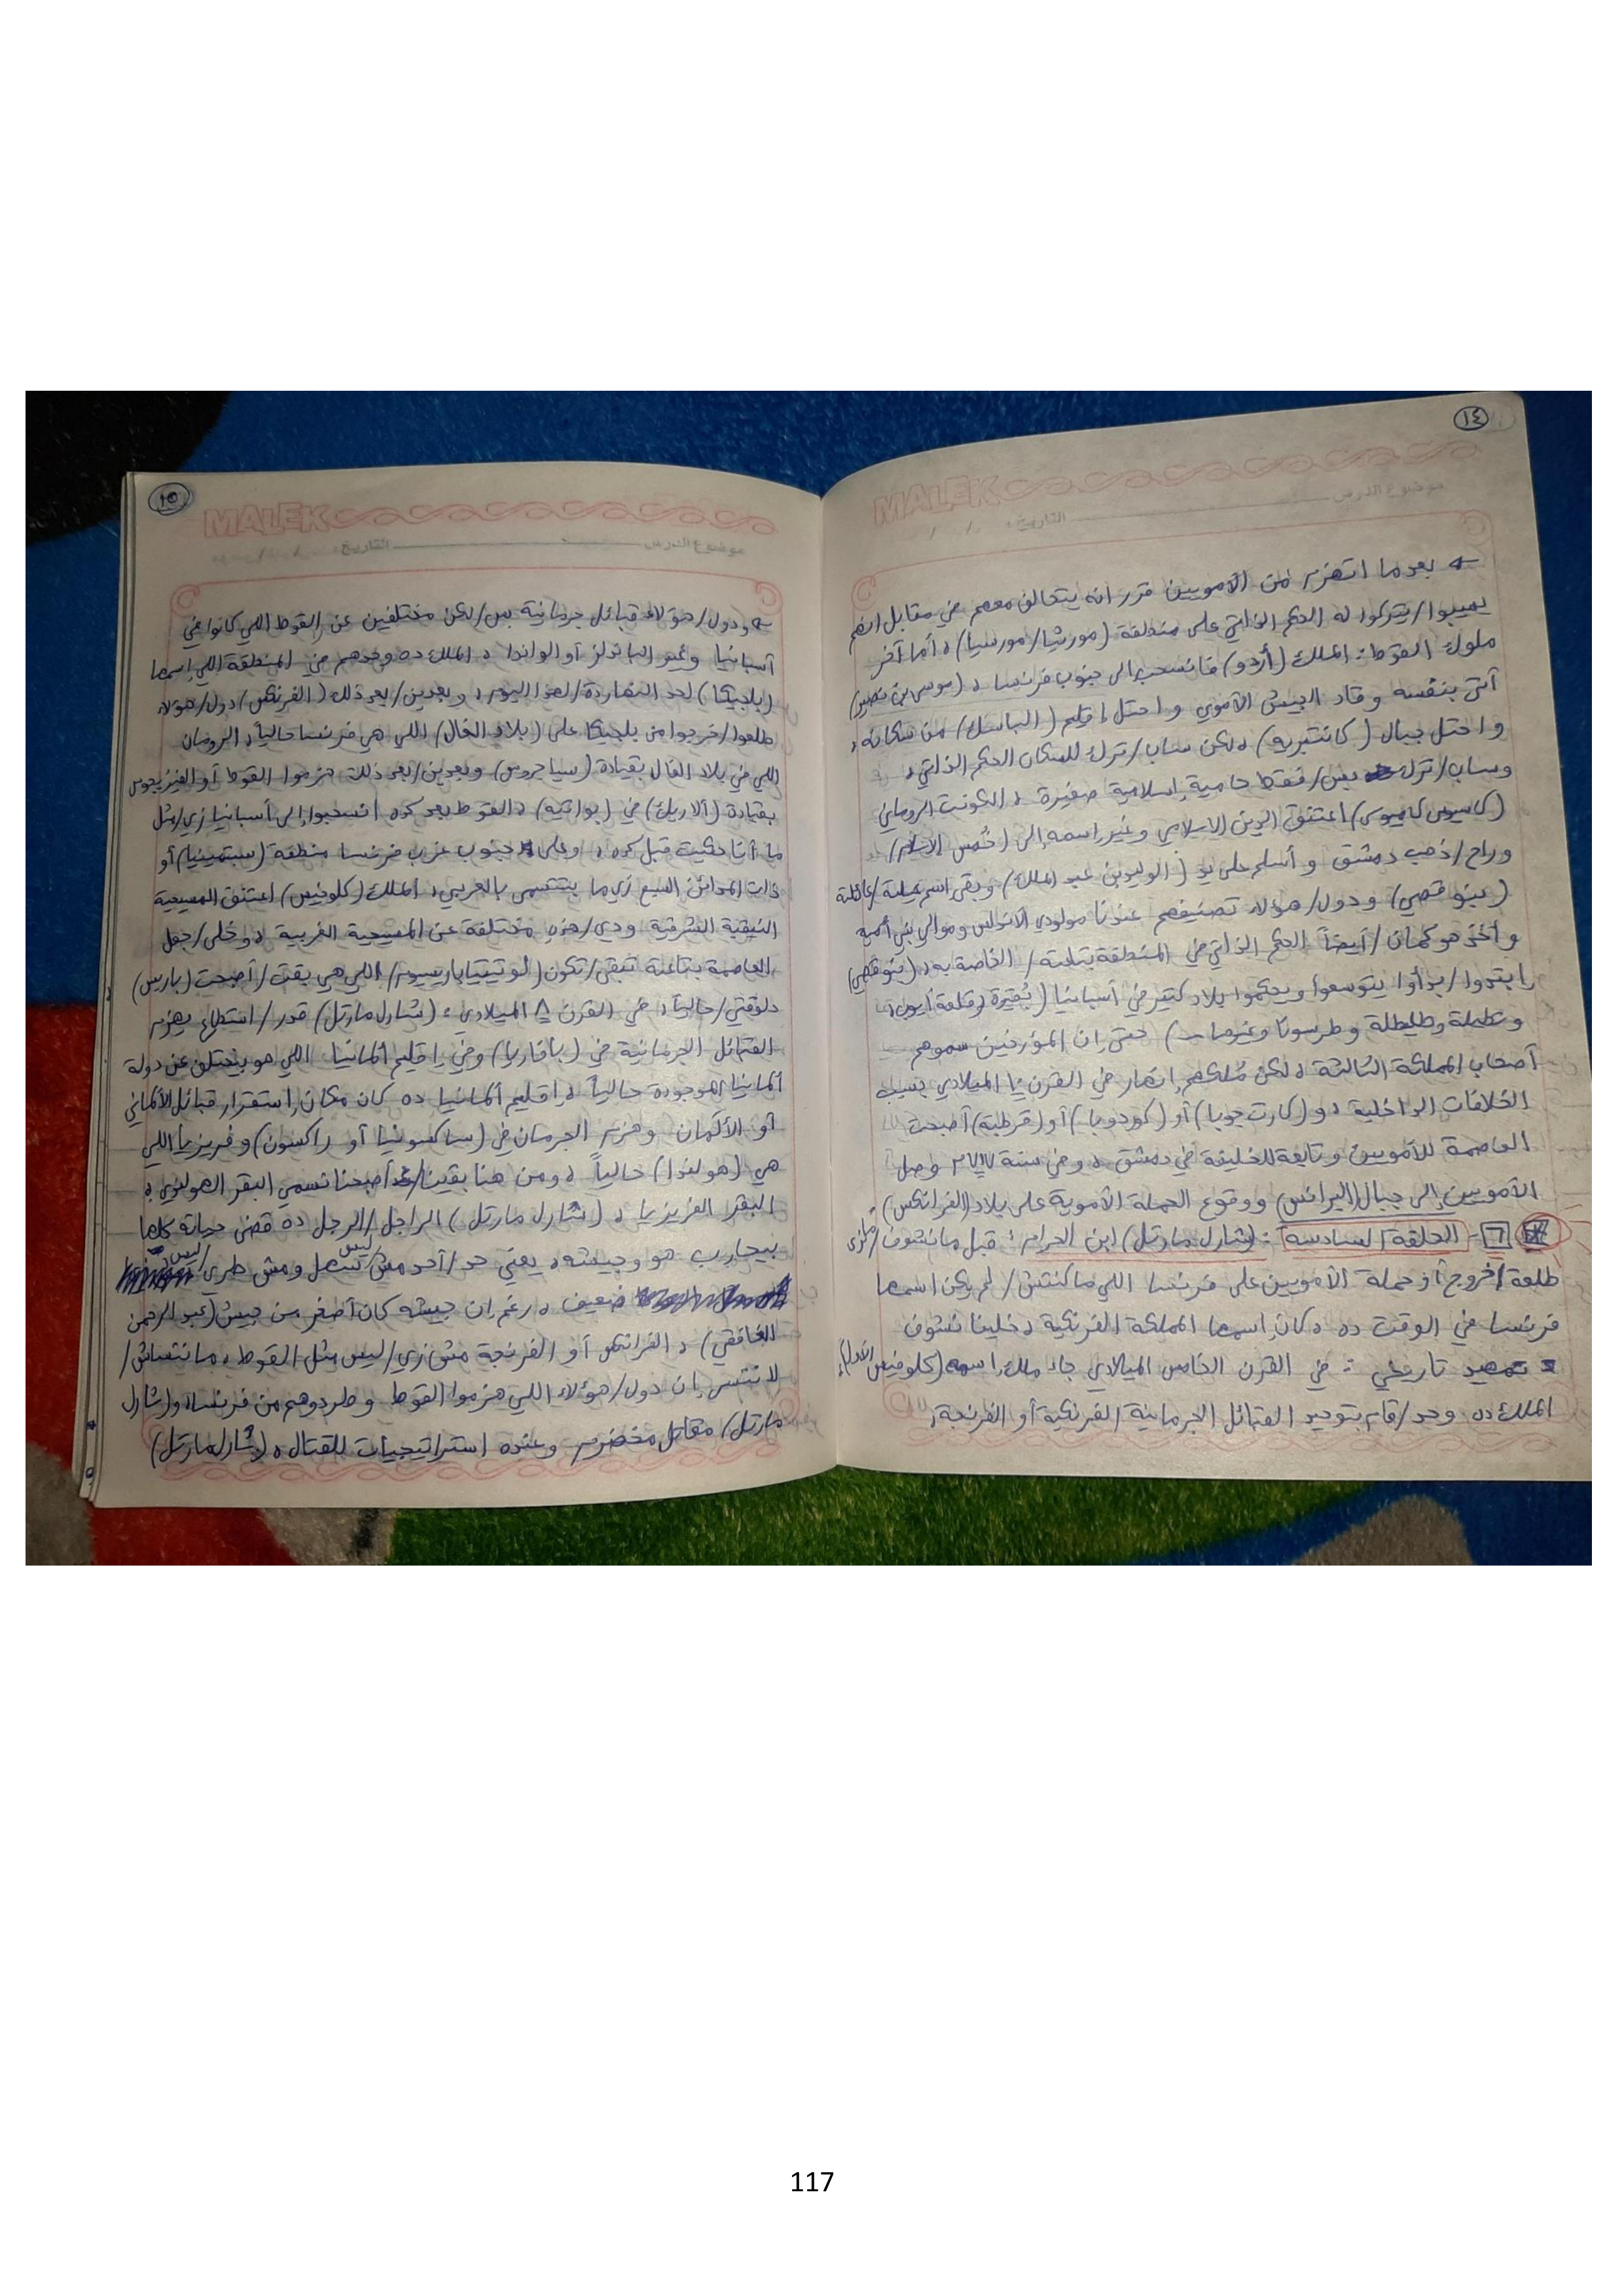 ١٤
MALEK
موضوع الدرس التاريخ: / /
بعدما اتهزم من الأمويين قرر انه يتحالف معهم في مقابل انهم
يسيبوا/يتركوا له الحكم الذاتي على منطقة (مورثيا/مورسيا)، أما آخر
ملوك القوط: الملك (أردو) فانسحب إلى جنوب فرنسا، (موسى بن نصير)
أتى بنفسه وقاد الجيش الأموي واحتل اقليم (الباسك) من سكانه،
واحتل جبال (كانتبريه)، لكن ساب/ترك للسكان الحكم الذاتي،
وساب/ترك بس/فقط حامية إسلامية صغيرة، الكونت الروماني
(كاسيوس) اعتنق الدين الاسلامي وغير اسمه إلى
وراح/ذهب دمشق وأسلم على يد (الوليد بن عبد الملك) وبقى اسم عيلته/عائلة
(بنو قصي) ودول/هؤلاء تصنيفهم عندنا مولودي الأندلس وموالي بني أمية
وأخذ هو كمان/أيضاً الحكم الذاتي في المنطقة بتاعته/الخاصة به، (بنو قصي)
ابتدوا/بدأوا يتوسعوا ويحكموا بلاد كتير في أسبانيا (بُقيرة وقلعة أيوب،
وتطيلة وطليطلة وطرسونا وغيرها) حتى إن المؤرخين سموهم
أصحاب المملكة الثالثة، لكن مُلكهم انهار في القرن الميلادي بسبب
الخلافات الداخلية، و(كارت جوبا) أو (كوردوبا) أو (قرطبة) أصبحت
العاصمة للأمويين وتابعة للخليفة في دمشق، وفي سنة وصل
الأمويين إلى جبال (البرانس) ووقوع الحملة الأموية على بلاد (الفرانكس)
٦- الحلقة السادسة: (شارل مارتل) ابن الحرام: قبل ما نشوف/نرى
طلعة/خروج أو حملة الأمويين على فرنسا اللي ما كنتش/لم يكن اسمها
فرنسا في الوقت ده، كان اسمها المملكة الفرنكية، خلينا نشوف
تمهيد تاريخي: في القرن الخامس الميلادي جاء ملك اسمه (كلوفيس الأول)،
الملك ده وحد/قام بتوحيد القبائل الجرمانية الفرنكية أو الفرنجة،
١٥
MALEK
موضوع الدرس التاريخ: / /
ودول/هؤلاء قبائل جرمانية بس/لكن مختلفين عن القوط اللي كانوا في
أسبانيا وغير الباندلز أو الواندا، الملك ده وحدهم في المنطقة اللي اسمها
(بلجيكا) لحد النهاردة/لهذا اليوم، وبعدين/بعد ذلك (الفرنكس) دول/هؤلاء
طلعوا/خرجوا من بلجيكا على (بلاد الغال) اللي هي فرنسا حالياً، الرومان
اللي في بلاد الغال بقيادة (سياجروس) وبعدين/بعد ذلك هزموا القوط أو الفيزيجوس
بقيادة (ألاريك) في (بواتيه)، القوط بعد كده انسحبوا إلى أسبانيا زي/مثل
ما أنا حكيت قبل كده، وعلى جنوب غرب فرنسا منطقة (سبتمينيا) أو
ذات المدائن السبع زي ما بتتسمى بالعربي، الملك (كلوفيس) اعتنق المسيحية
النيقية الشرقية ودي/هذه مختلفة عن المسيحية الغربية، وخلى/جعل
العاصمة بتاعته تبقى/تكون (لوتيتيا باريسيوم/ اللي هي بقت/أصبحت (باريس)
دلوقتي/حالياً، في القرن ٨ الميلادي: (شارل مارتل) قدر/استطاع يهزم
القبائل الجرمانية في (بافاريا) وفي إقليم ألمانيا اللي هو بيختلف عن دولة
ألمانيا الموجودة حالياً، إقليم ألمانيا ده كان مكان استقرار قبائل الألماني
أو الألمان وهزم الجرمان في (ساكسونيا أو راكسون) وفريزيا اللي
هي (هولندا) حالياً، ومن هنا بقينا/أصبحنا نسمي البقر الهولندي،
البقر الفريزيا، (شارل مارتل) الراجل/الرجل ده قضى حياته كلها
بيحارب هو وجيشه، يعني حد/أحد مش/ليس سهل ومش طري/ليس
ضعيف، رغم إن جيشه كان أصغر من جيش (عبد الرحمن
الغافقي)، الفرانكس أو الفرنجة مش زي/ليس مثل القوط، ما نتساش/
لا ننسى إن دول/هؤلاء اللي هزموا القوط وطردوهم من فرنسا، و(شارل
مارتل) مقاتل مخضرم وعنده استراتيجيات للقتال، (شارل مارتل)
117